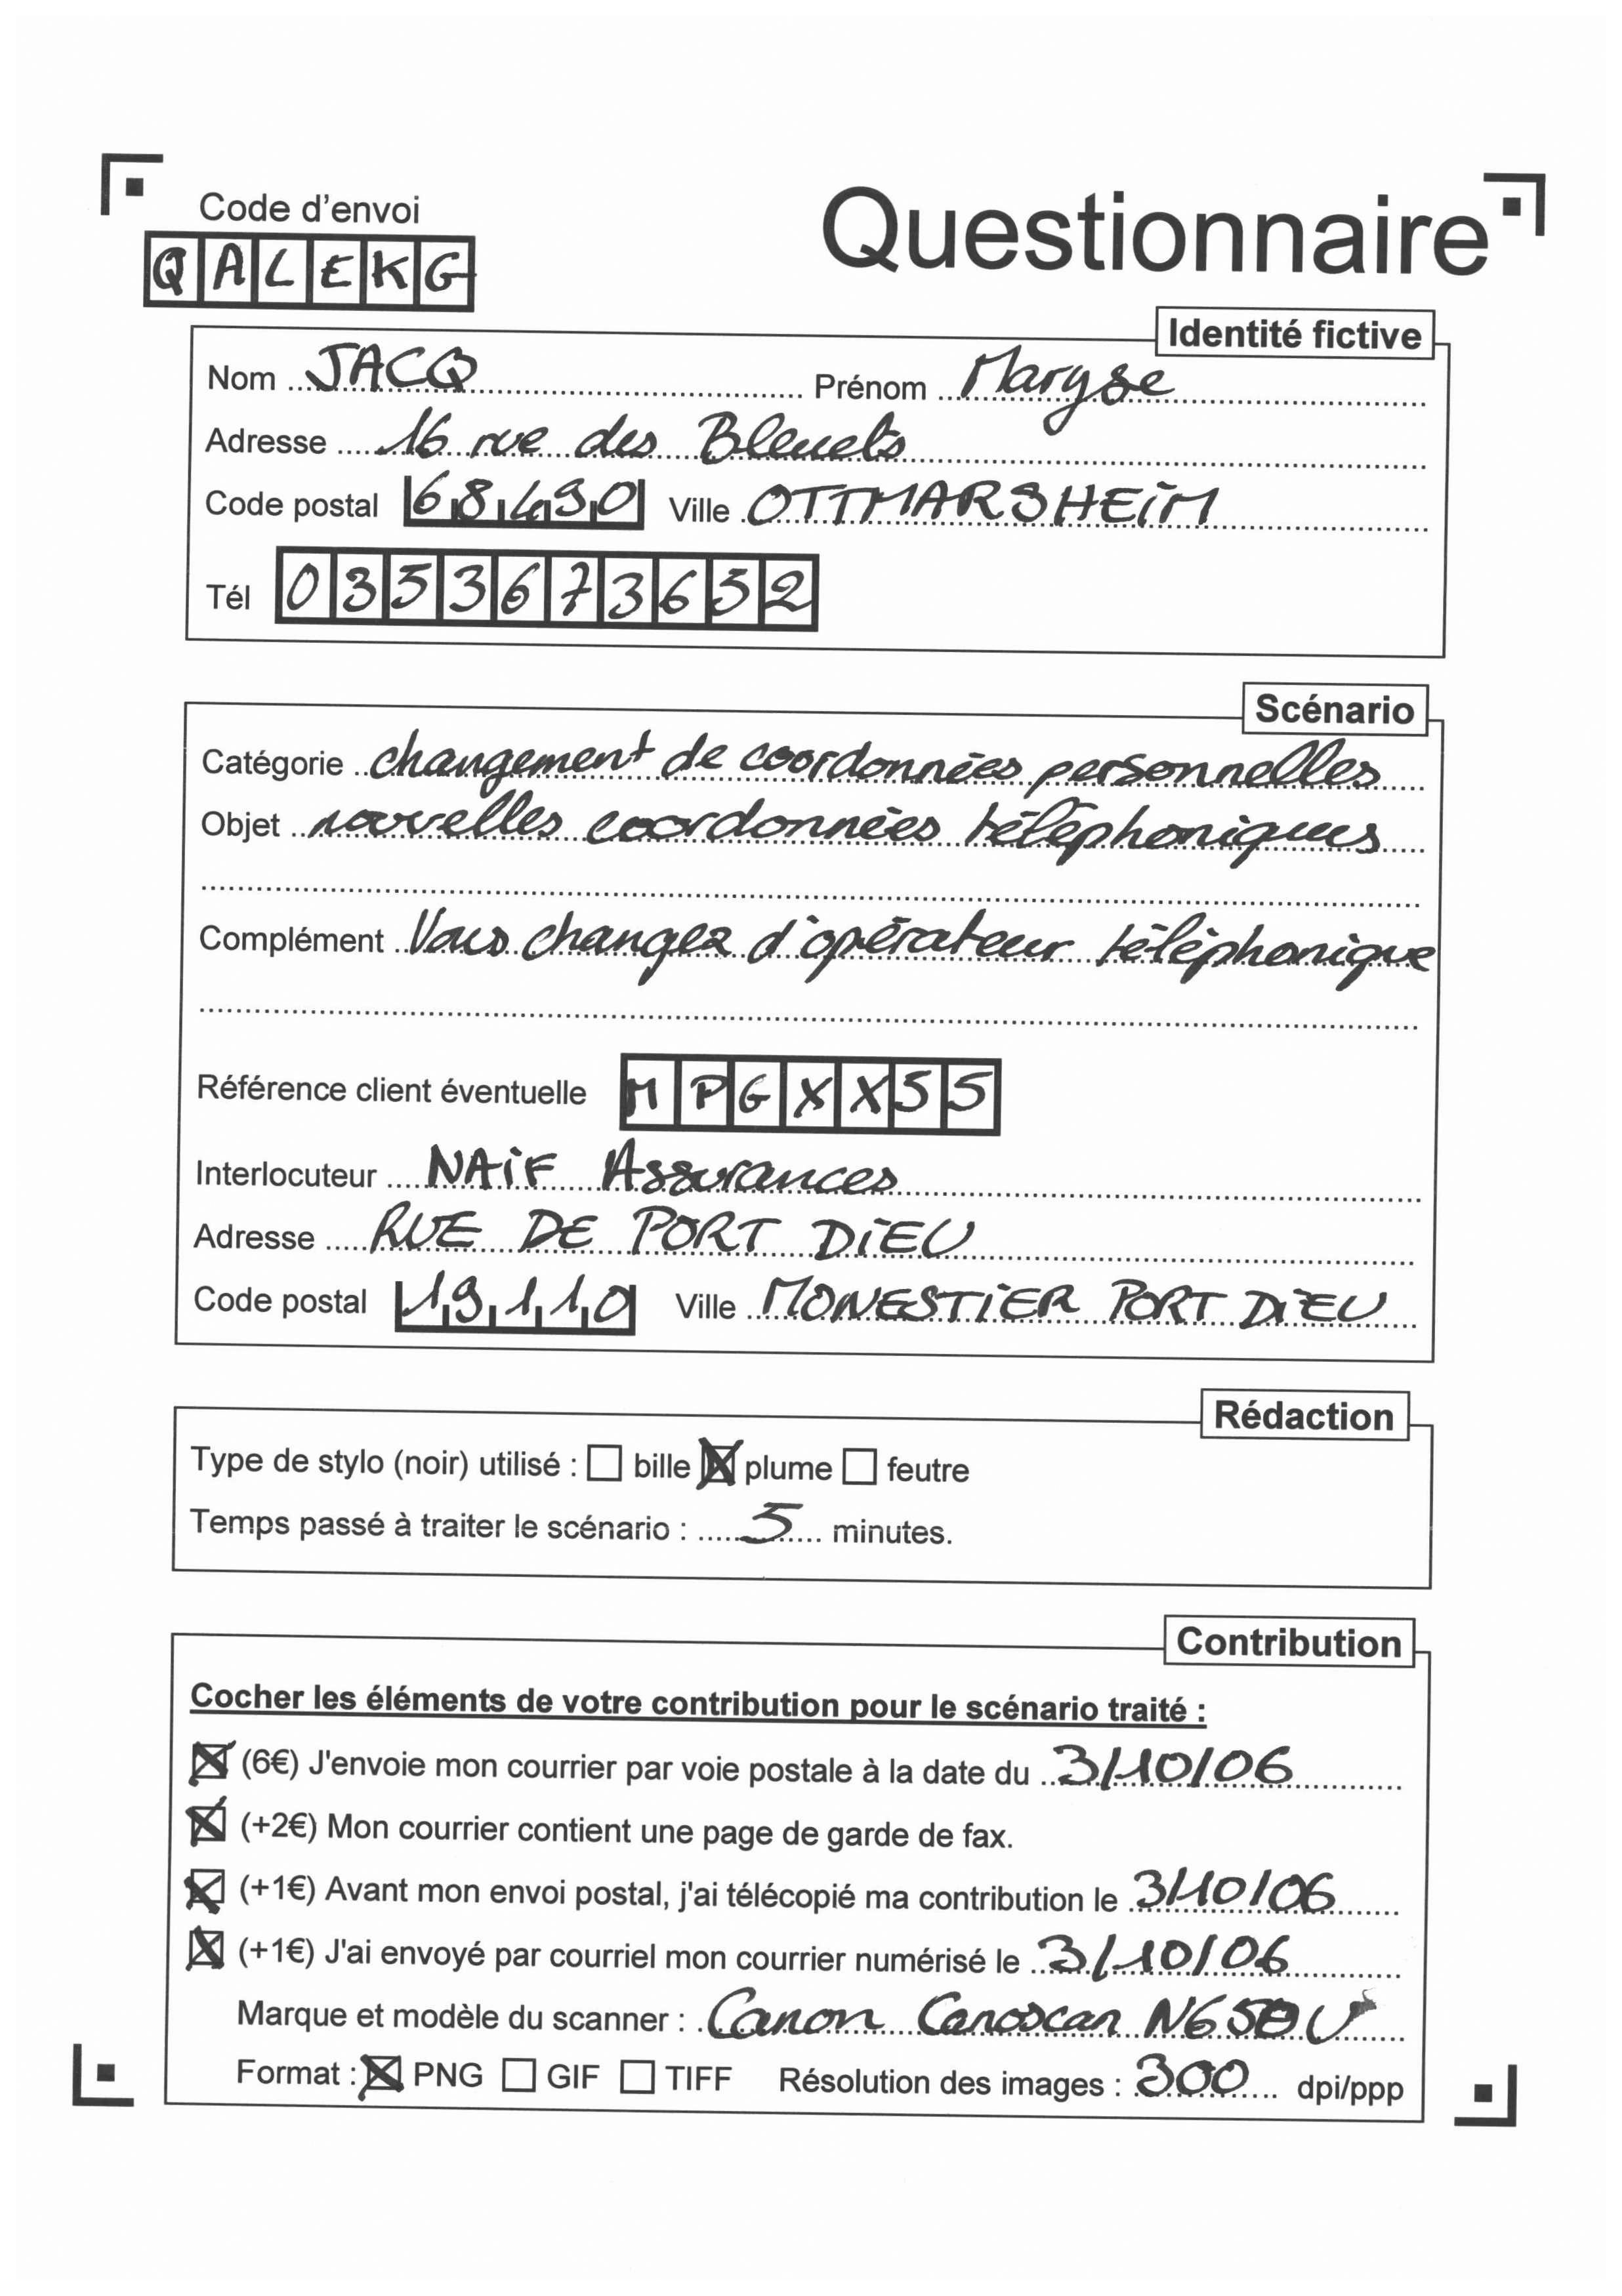 Code d'envoi
QALEKG
Questionnaire
Identité fictive
Nom JACQ Prénom Maryse
Adresse 16 rue des Bleuets
Code postal 68490 Ville OTTMARSHEIM
Tél 0353673652
Scénario
Catégorie changement de coordonnées personnelles
Objet nouvelles coordonnées téléphoniques
Complément Vous changez d'opérateur téléphonique
Référence client éventuelle MPGXX55
Interlocuteur NAIF Assurances
Adresse RUE DE PORT DIEU
Code postal 19110 Ville MONESTIER PORT DIEU
Rédaction
Type de stylo (noir) utilisé : bille plume feutre
Temps passé à traiter le scénario : 5 minutes.
Contribution
Cocher les éléments de votre contribution pour le scénario traité :
(6€) J'envoie mon courrier par voie postale à la date du 3/10/06
(+2€) Mon courrier contient une page de garde de fax.
(+1€) Avant mon envoi postal, j'ai télécopié ma contribution le 3/10/06
(+1€) J'ai envoyé par courriel mon courrier numérisé le 3/10/06
Marque et modèle du scanner : Canon Canoscan N650U
Format : PNG GIF TIFF Résolution des images : 300 dpi/ppp